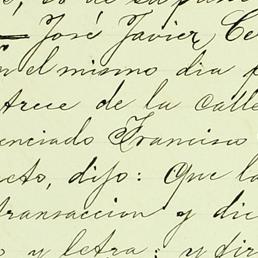 José Javier, Ce
el mismo dia
trece de la calle
enciado Francisco
dijo: Que la
transaccion y dic
y letra; y fir